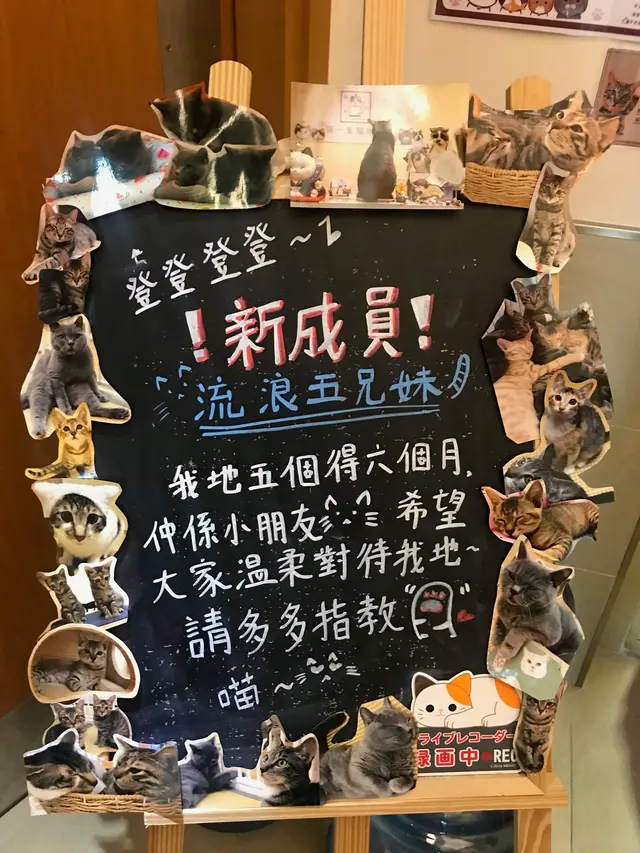 登登登登~♪
!新成員!
流浪五兄妹
我地五個得六個月,
仲係小朋友 希望
大家溫柔對待我地~
請多多指教
喵~
ライブレコーダー
録画中 REC